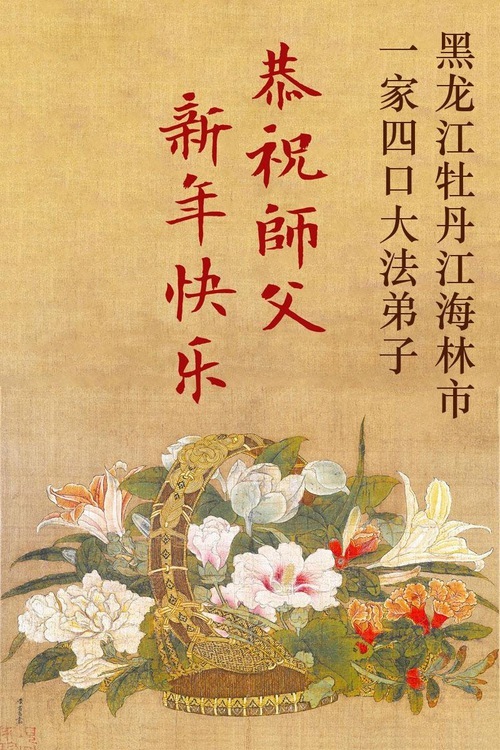 黑龙江牡丹江海林市
一家四口大法弟子
恭祝師父
新年快乐